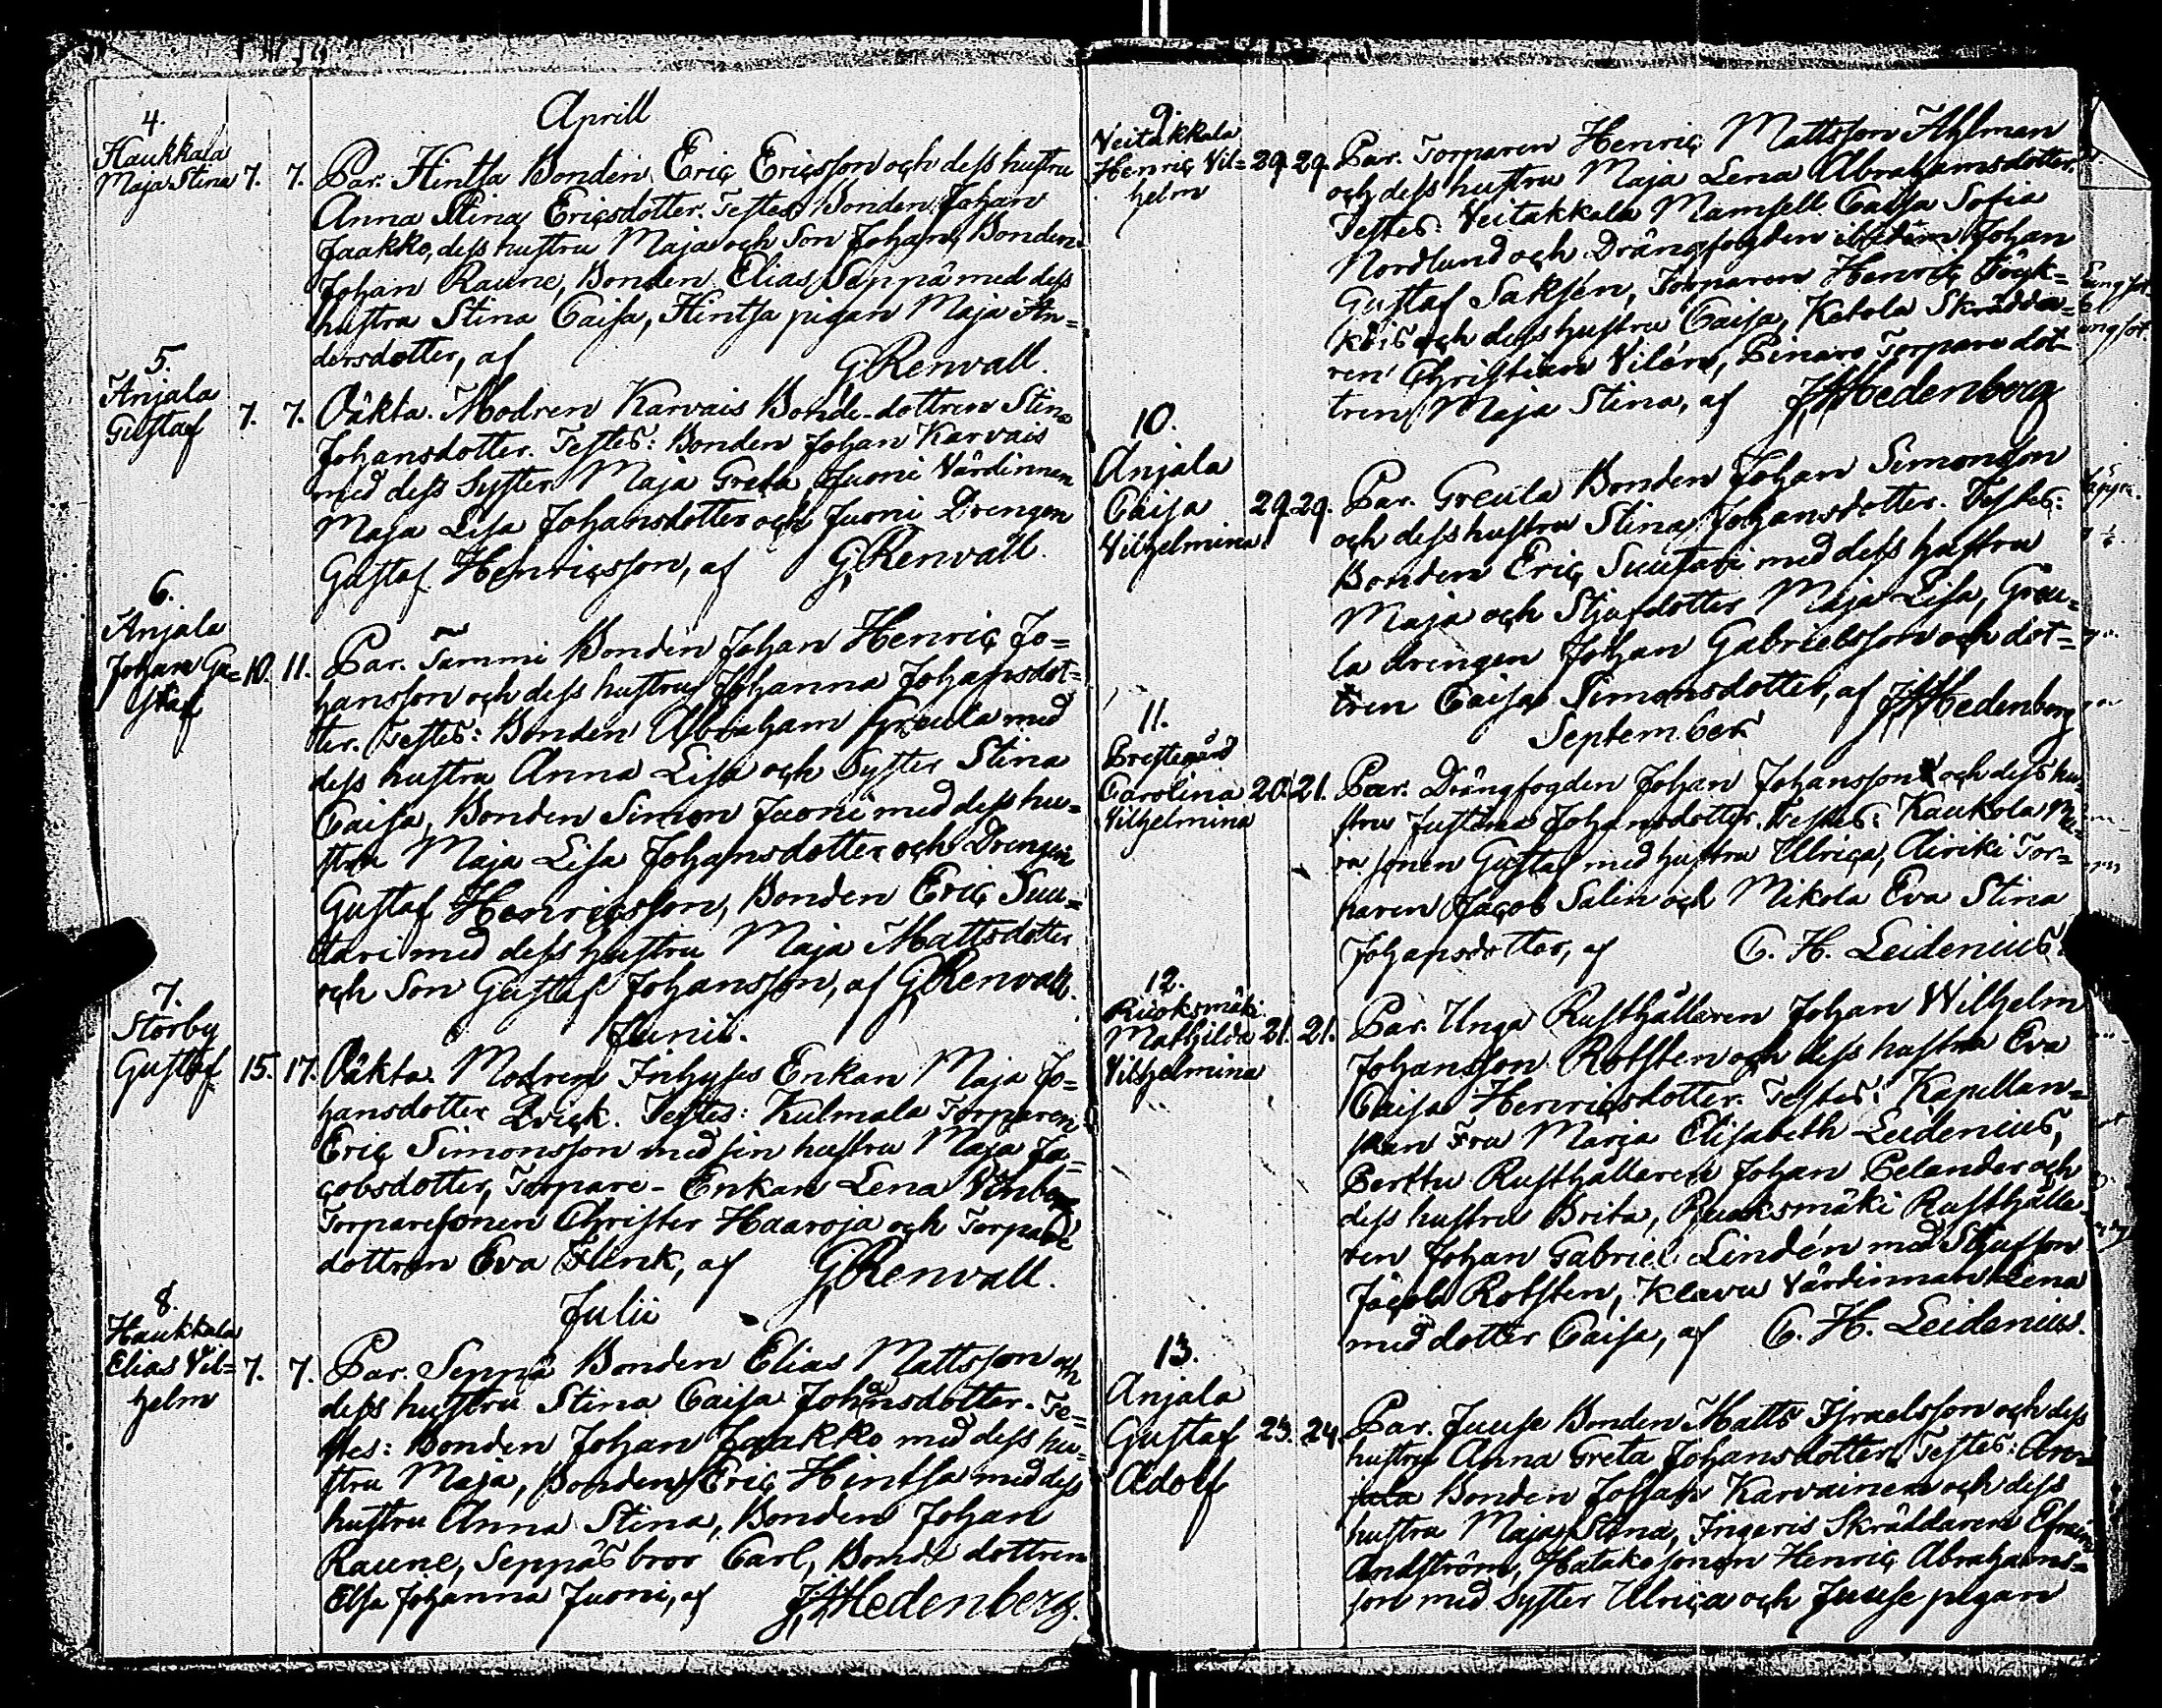 Aprill
4.
Haukkala
Maja Stina 7. 7. Par. Hintsa Bonden Eric Ericsson och dess hustru
Anna Stina Ericsdotter. Testes Bonden Johan
Jaakko, dess hustru Maja och Son Johan, Bonden
Johan Raune, Bonden Elias Seppä med dess
hustru Stina Caisa, Hintsa pigan Maja An=
dersdotter, af G Renvall.
5.
Anjala
Gustaf 7. 7. Oäkta. Modren Karvais Bonde-dottren Stina
Johansdotter. Testes: Bonden Johan Karvais
med dess Syster Maja Greta, Juoni Värdinnan
Maja Lisa Johansdotter och Juoni Drengen
Gustaf Henricsson, af G Renvall.
6.
Anjala
Johan Gu=
staf 10. 11. Par. Tammi Bonden Johan Henric Jo=
hansson och dess hustru Johanna Johansdot=
ter. Testes: Bonden Abraham Greula med
dess hustru Anna Lisa och Syster Stina
Caisa, Bonden Simon Juoni med dess hu=
stru Maja Lisa Johansdotter och Drengen
Gustaf Henricsson, Bonden Eric Suu=
tari med dess hustru Maja Mattsdotter
och Son Gustaf Johansson, af G Renvall.
Junii.
7.
Storby
Gustaf 15. 17. Oäkta. Modren Inhyses Enkan Maja Jo=
hansdotter Qvick. Testes: Kulmala Torparen
Eric Simonsson med sin hustru Maja Ja=
cobsdotter, Torpare-Enkan Lena
Torparesonen Christer Haaroja och Torpare
dottren Eva, af G Renvall.
Julii
8.
Haukkala
Elias Vil=
helm 7. 7. Par. Seppä Bonden Elias Mattsson och
dess hustru Stina Caisa Johansdotter. Te=
stes: Bonden Johan Jaakko med dess hu=
stru Maja, Bonden Eric Hintsa med dess
hustru Anna Stina, Bonden Johan
Raune, Seppäs bror Carl, Bonde dottren
Elsa Johanna Juoni, af J H Hedenberg.
9.
Veitakkala
Henric Vil=
helm 29. 29. Par. Torparen Henric Mattsson Ahlman
och dess hustru Maja Lena Abrahamsdotter.
Testes: Veitakkala Mamsell Caisa Sofia
Nordlund och Drängfogden Johan
Gustaf Saksén, Torparen Henric
och dess hustru Caisa, Ketola Skrädda=
ren Christian Vilén, Torpare dot=
tren Maja Stina, af J H Hedenberg
10.
Anjala
Caisa
Vilhelmina 29. 29. Par. Greula Bonden Johan Simonsson
och dess hustru Stina Johansdotter. Testes:
Bonden Eric Suutari med dess hustru
Maja och Stjufdotter Maja Lisa, Greu=
la drengen Johan Gabrielsson och dot=
tren Caisa Simonsdotter, af J H Hedenberg
September
11.
Prestegård
Carolina
Vilhelmina 20. 21. Par. Drängfogden Johan Johansson och dess hu=
stru Justina Johansdotter. Testes: Kaukola
sonen Gustaf med hustru Ulrica, Airiki Tor=
paren Jacob Salin och Mikola Eva Stina
Johansdotter, af C. H. Leidenius.
12.
Ruoksmäki
Mathilda
Vilhelmina 21. 21. Par. Unga Rusthållaren Johan Wilhelm
Johansson Rotsten och dess hustru Eva
Caisa Henricsdotter. Testes: Kapellan=
skan Fru Maria Elisabeth Leidenius,
Perttu Rusthållaren Johan Pelander och
dess hustru Brita, Ruoksmäki Rusthålla=
ren Johan Gabriel Lindén med Stjufson
Jacob Rotsten, Klavu Värdinnan Lena
med dotter Caisa, af C. H. Leidenius.
13.
Anjala
Gustaf
Adolf 23. 24. Par. Juuse Bonden Matts Israelsson och dess
hustru Anna Greta Johansdotter. Testes:
Bonden Johan Karvainen och dess
hustru Maja Stina, Ingeris Skräddaren Efraim
Andström, Hatako sonen Henric Abrahams=
son med Syster Ulrica och Juuse pigan